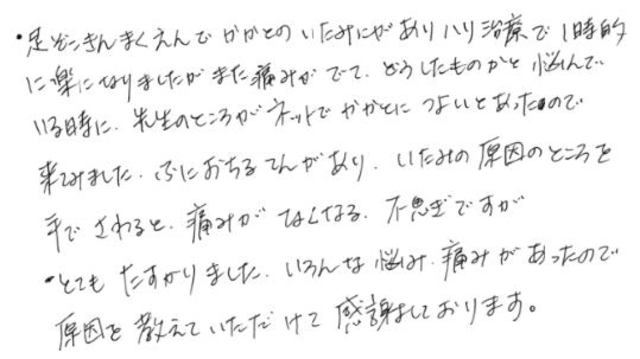 ・足ぞこきんまくえんで かかとの いたみにがあり ハリ治療で 1時的
に楽になりましたが また痛みがでて、どうしたものかと 悩んで
いる時に、先生のところが ネットで かかとに つよいとあったので
来てみました。ふにおちる てんがあり、いたみの 原因のところを
手で さわると、痛みが なくなる、不思ギですが
・とても たすかりました、いろんな 悩み、痛みがあったので
原因を 教えていただけて 感謝しております。